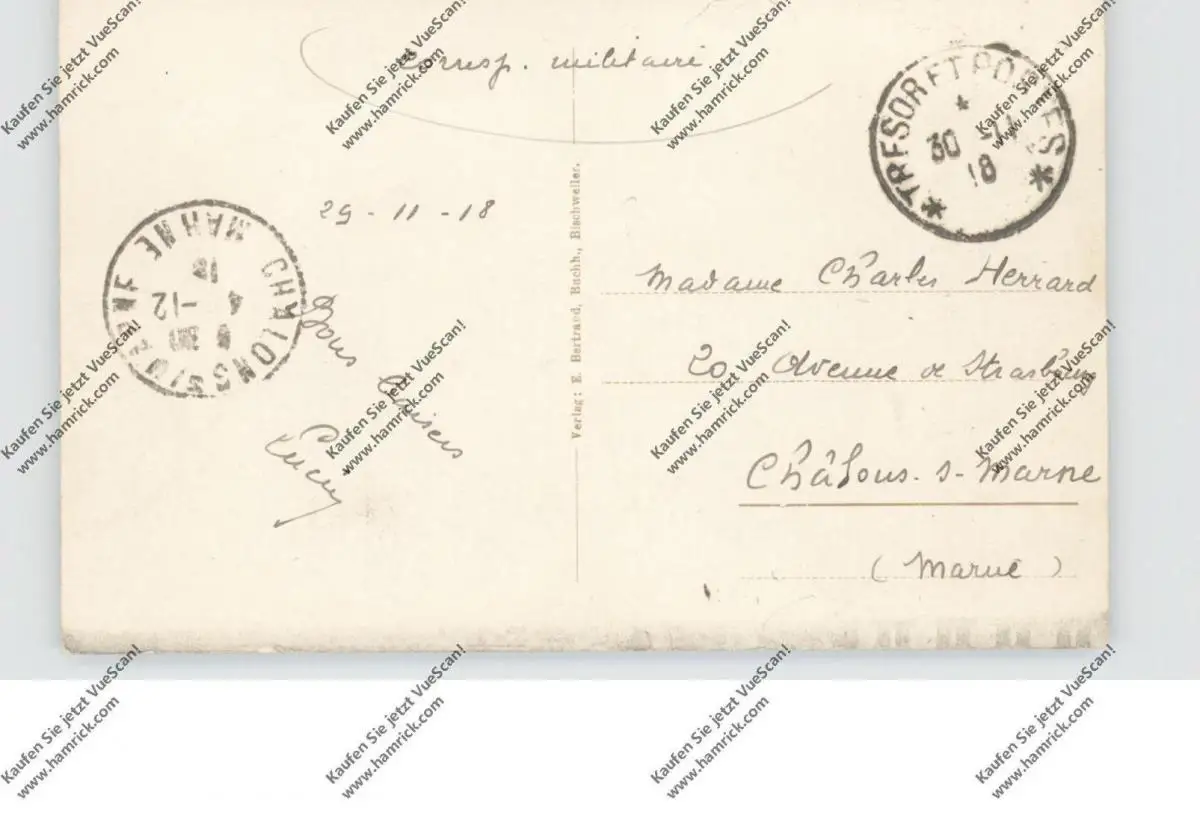 Corresp. militaire
TRESOR ET POSTES
30 -11
18
29 - 11 - 18
CHALONS S/ MARNE MARNE
4 -12
18
Bons baisers
Lucien
Verlag: E. Bertrand, Buchh., Bischweiler.
Madame Charles Herrard
20 Avenue de Strasbourg
Châlons-s-Marne
(Marne)
Kaufen Sie jetzt VueScan!
www.hamrick.com
Kaufen Sie jetzt VueScan!
www.hamrick.com
Kaufen Sie jetzt VueScan!
www.hamrick.com
Kaufen Sie jetzt VueScan!
www.hamrick.com
Kaufen Sie jetzt VueScan!
www.hamrick.com
Kaufen Sie jetzt VueScan!
www.hamrick.com
Kaufen Sie jetzt VueScan!
www.hamrick.com
Kaufen Sie jetzt VueScan!
www.hamrick.com
Kaufen Sie jetzt VueScan!
www.hamrick.com
Kaufen Sie jetzt VueScan!
www.hamrick.com
Kaufen Sie jetzt VueScan!
www.hamrick.com
Kaufen Sie jetzt VueScan!
www.hamrick.com